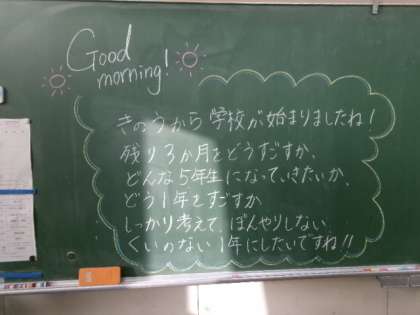 Good
morning!
きのうから学校が始まりましたね!
残り3か月をどうすごすか、
どんな5年生になっていきたいか、
どう1年をすごすか
しっかり考えて、ぼんやりしない
くいのない1年にしたいですね!!